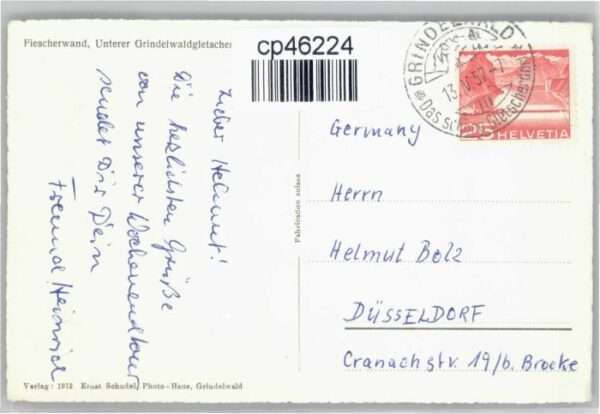 Fiescherwand, Unterer Grindelwaldgletscher
cp46224
Lieber Helmut!
Die herzlichsten Grüße
von unserer Wochenendtour
sendet Dir Dein
Freund Heinrich
Fabrication suisse
GRINDELWALD
13.V.57-7
HELVETIA
Germany
Herrn
Helmut Bolz
DÜSSELDORF
Cranachstr. 19/b. Brocke
Verlag: 1912 Ernst Schudel, Photo-Haus, Grindelwald